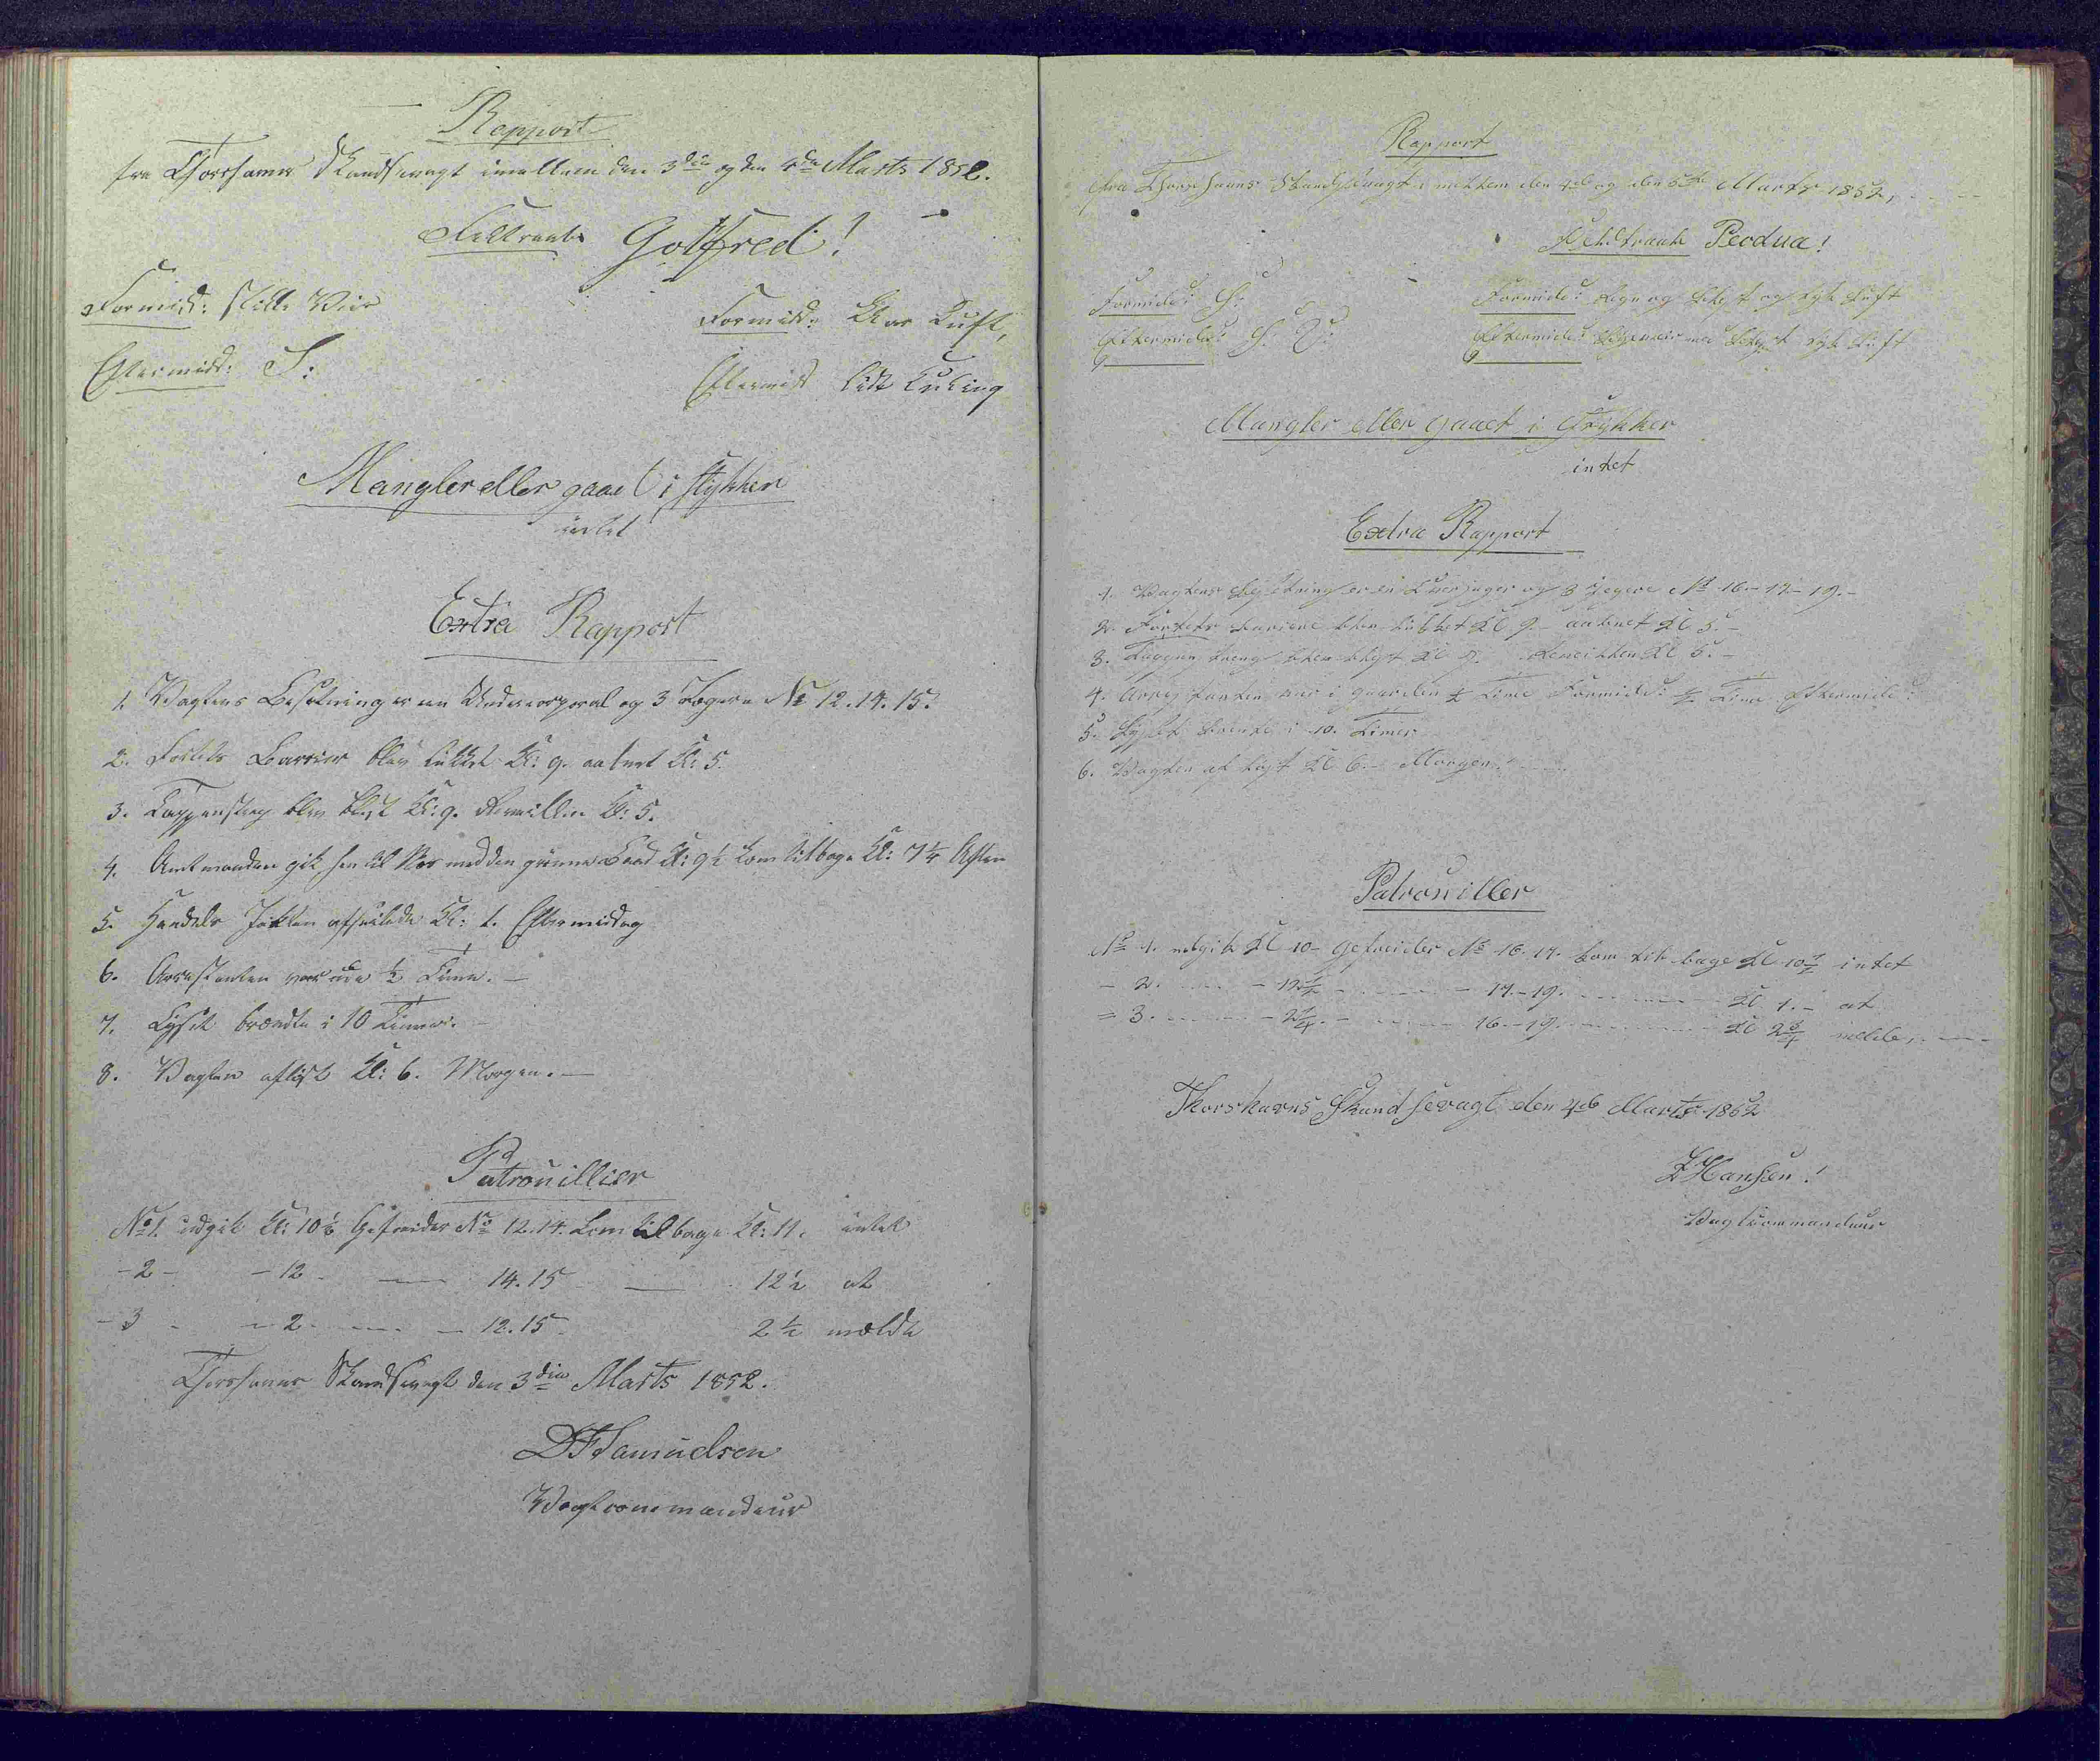 Rapport
fra Thorshavns Skandsevagt imellem den 3die og den 4de Marts 1852.
Feltraabs Gotfred!
Formidd: stille Veir
Formidd: Klar Luft,
Eftermidd: S:
Eftermidd lidt Kuling
Mangler eller gaaet i stykker
intet
Extra Rapport
1. Vagtens Besætning er een Undercorporal og 3 Jægere No 12. 14. 15.
2. Fortets Barrier blev lukket Kl: 9. aabnet Kl: 5.
3. Tappenstreg blev blæst Kl: 9. Reveillen Kl: 5.
4. Amtmanden gik hen til Næs med den grønne Baad Kl: 9½ kom tilbage Kl: 7¼ Aften
5. Handels Jakten afseilede Kl: 1. Eftermiddag
6. Arrestanten var ude ½ Time. –
7. Lyset brændte i 10 Timer. –
8. Vagten afløst Kl: 6. Morgen. –
Patrouillier
No 1. udgik Kl: 10½ Gefreider No 12. 14. kom tilbage Kl: 11. intet
- 2 - - 12. — 14. 15 — 12½ at
- 3 - - 2. — - 12. 15. 2½ melde
Thorshavns Skandsevagt den 3die Marts 1852.
Samuelsen
Vagtcommandeur
Rapport
fra Thorshavns Skandsevagt imellem den 4de og den 5te Marts 1852,
Feldtraab
Formidd: S:
Formidd: Regn og tyk Luft
Eftermidd: S. O:
Eftermidd: tyk Luft
Mangler eller gaaet i Stykker
intet
Extra Rapport
1. Vagtens Besetning er en og 3 Jegere No 16 - 17 - 19. -
2. Fortets bariere blev lukket Kl 9. - aabnet Kl 5. -
3. Tappenstreg blev blest Kl 9. Reveillen Kl 5. -
4. Arrestanten var i gaarden ½ Time Formidd: ½ Time Eftermidd:
5. Lyset brente i 10. Timer
6. Vagten afløst Kl 6. - Morgen.
Patrouiller
No 1. udgik Kl 10 - Gefreider No 16. 17. kom tilbage Kl 10½ intet
- 2. - 12½ - 17. - 19. Kl 1. - at
= 3. - 2¼. - 16. - 19. Kl 2¾ melde,
Thorshavns Skandsevagt den 4de Marts 1852
Hansen!
Vagtcommandeur